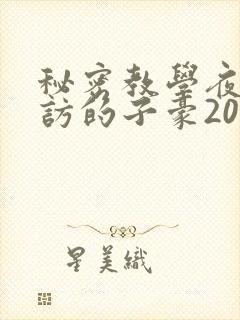 秘密教學夜
訪的子豪20
星美織